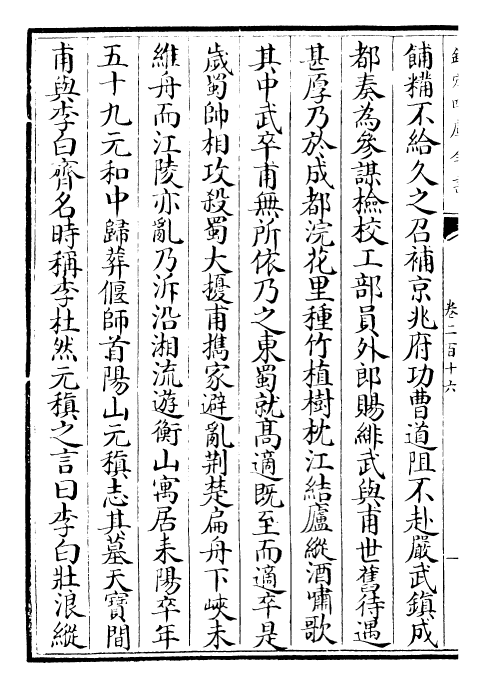 欽定四庫全書
卷二百十六
餔糒不給久之召補京兆府功曹道阻不赴嚴武鎮成
都奏為參謀檢校工部員外郎賜緋武與甫世舊待遇
甚厚乃於成都浣花里種竹植樹枕江結廬縱酒嘯歌
其中武卒甫無所依乃之東蜀就高適既至而適卒是
歲蜀帥相攻殺蜀大擾甫攜家避亂荆楚扁舟下峽未
維舟而江陵亦亂乃泝沿湘流遊衡山寓居耒陽卒年
五十九元和中歸葬偃師首陽山元稹志其墓天寶間
甫與李白齊名時稱李杜然元稹之言曰李白壯浪縱